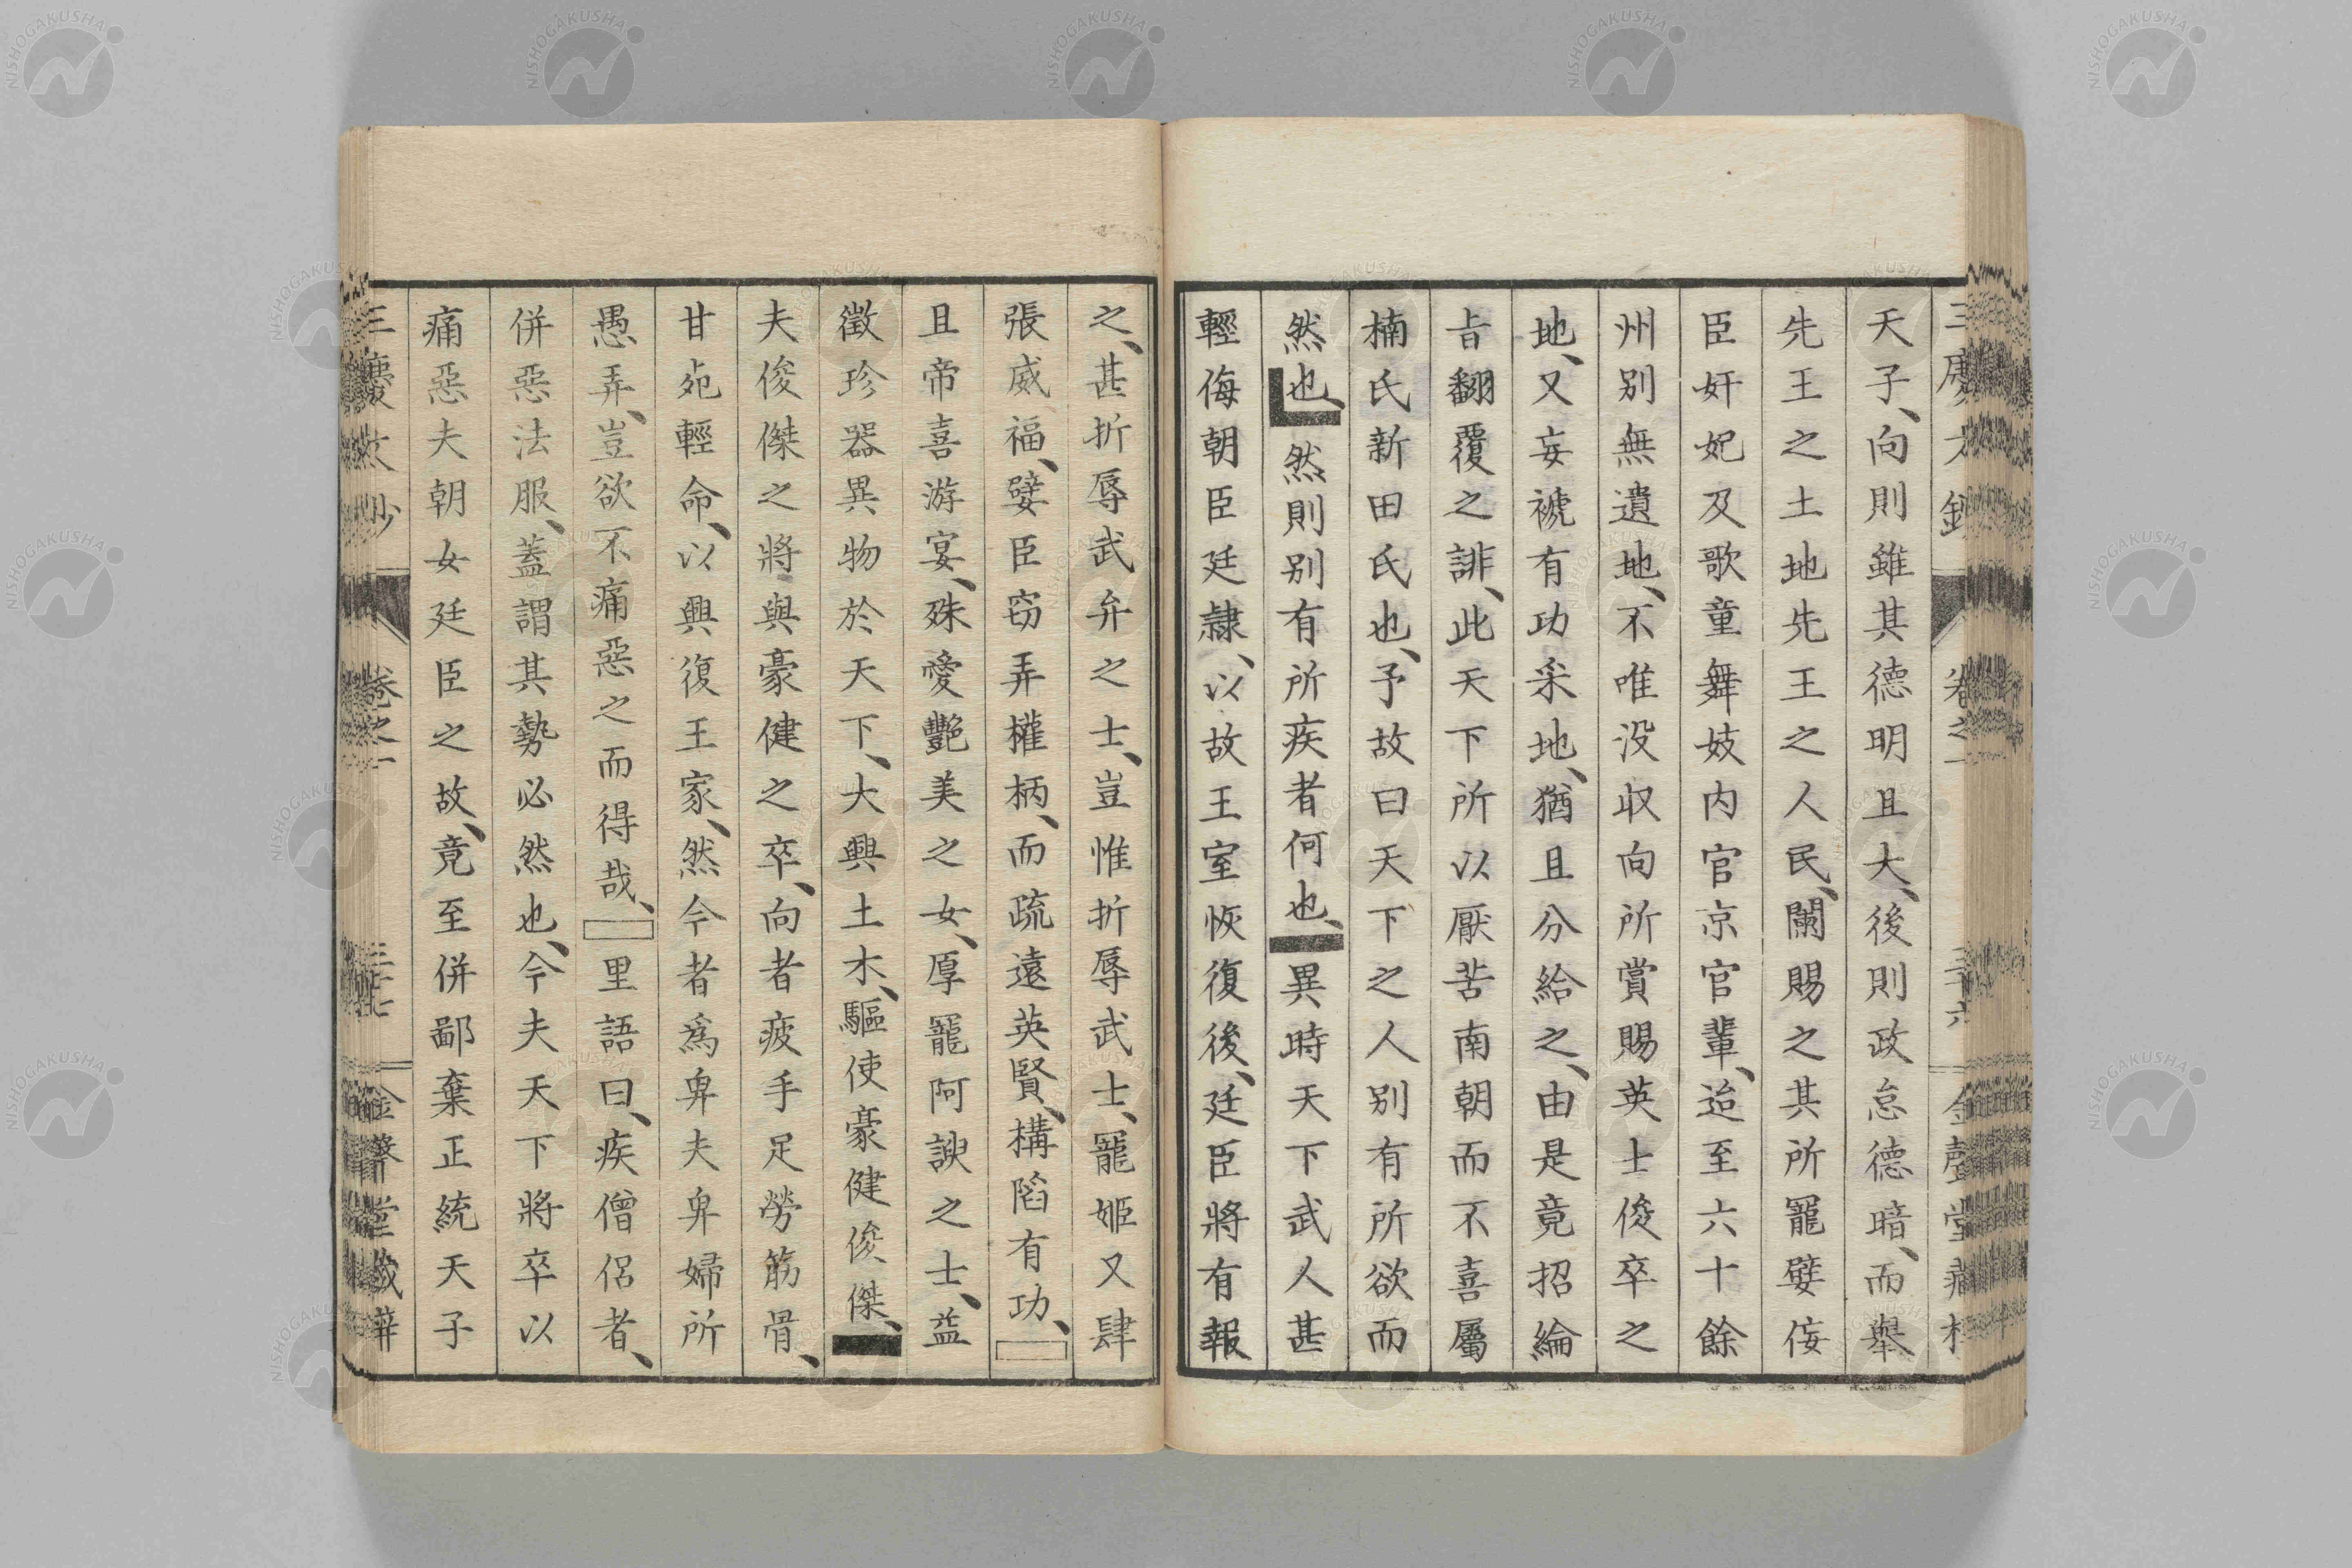 天子、向則雖其德明且大、後則政怠德暗、而舉
先王之土地先王之人民、闌賜之其所寵嬖侫
臣奸妃及歌童舞妓内官京官輩、迨至六十餘
州別無遺地、不唯没収向所賞賜英士俊卒之
地、又妄褫有功采地、猶且分給之、由是竟招綸
㫖翻覆之誹、此天下所以厭苦南朝而不喜屬
楠氏新田氏也、予故曰天下之人別有所欲而
然也、然則別有所疾者何也、異時天下武人甚
輕侮朝臣廷隷、以故王室恢復後、廷臣將有報
之、甚折辱武弁之士、豈惟折辱武士、寵姬又肆
張威福、嬖臣窃弄權柄、而疏遠英賢、構陷有功、
且帝喜游宴、殊愛艷美之女、厚寵阿諛之士、益
徵珍器異物於天下、大興土木、驅使豪健俊傑、
夫俊傑之將與豪健之卒、向者疲手足勞筋骨、
甘死輕命、以興復王家、然今者為卑夫卑婦所
愚弄、豈欲不痛惡之而得哉、里語曰、疾僧侶者、
併惡法服、蓋謂其勢必然也、今夫天下將卒以
痛惡夫朝女廷臣之故、竟至併鄙棄正統天子
三慶文鈔 卷之一 三十七 金聲堂藏梓